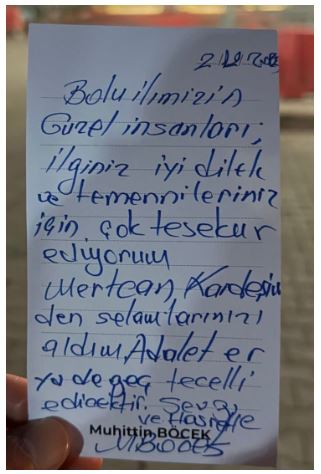 Bolu ilimizin
Güzel insanları,
ilginiz iyi dilek
ve temennileriniz
için çok teşekür
ediyorum
Mertcan Kardeşim
den selamlarınızı
aldım, Adalet er
ya de geç tecelli
edecektir. Sevgi
ve Hasretle
Muhittin BÖCEK